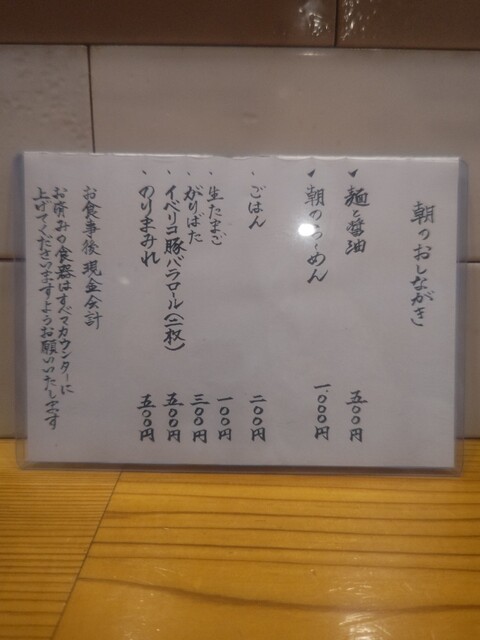 朝のおしながき
麺と醤油 五〇〇円
朝のらーめん 一、〇〇〇円
ごはん 二〇〇円
生たまご 一〇〇円
がりばた 三〇〇円
イベリコ豚バラロール(二枚) 五〇〇円
のりまみれ 五〇〇円
お食事後現金会計
お済みの食器はすべてカウンターに
上げてくださいますようお願いいたします